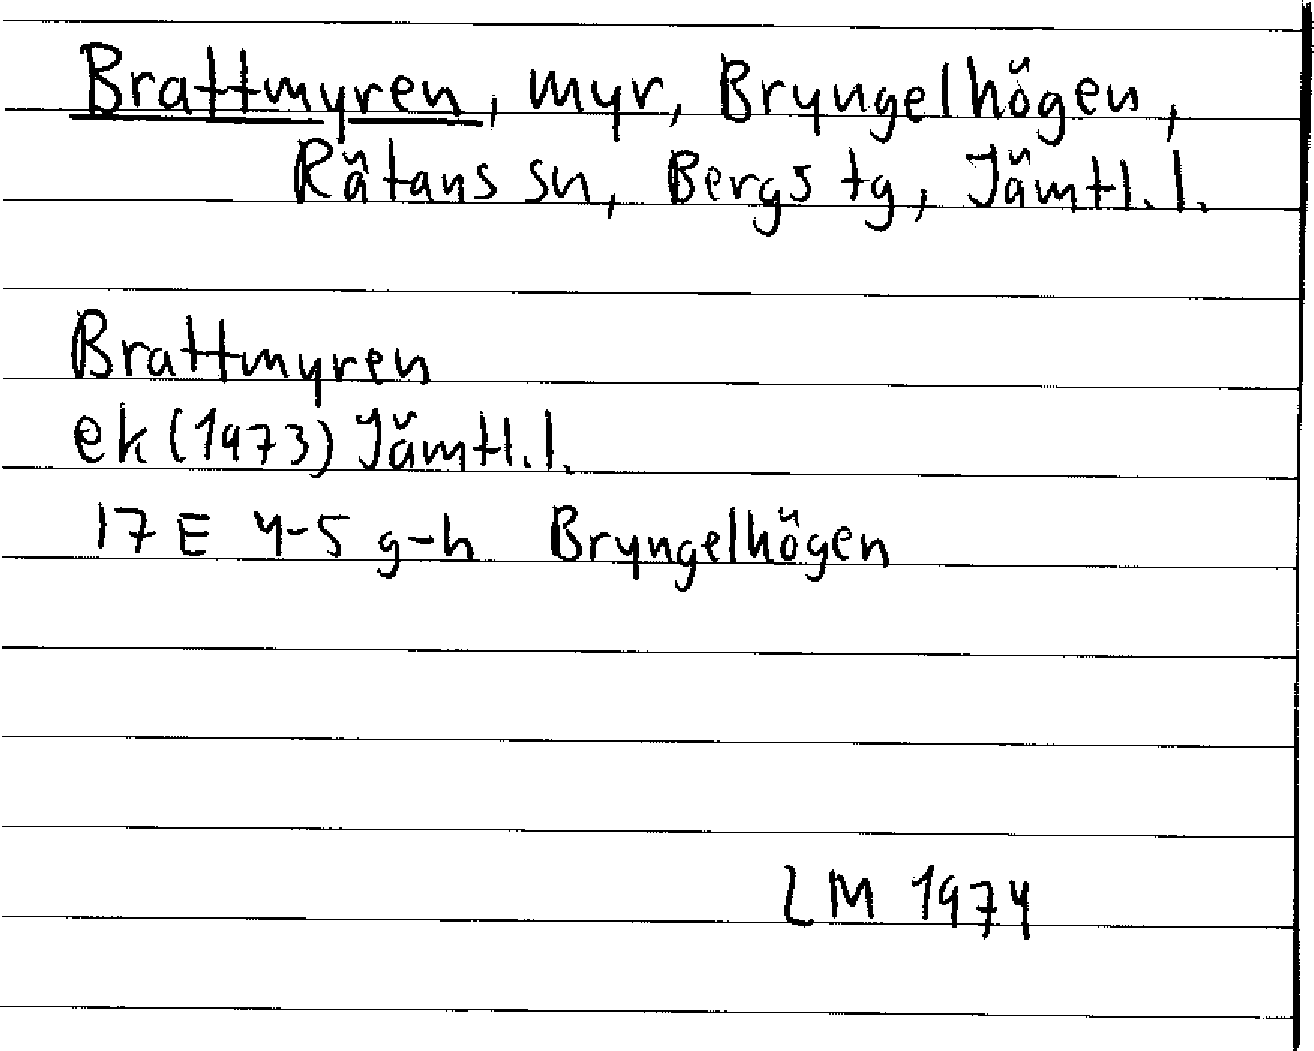 Brattmyren, myr, Bryngelhögen,
Rätans sn, Bergs tg, Jämtl. l.
Brattmyren
ek (1973) Jämtl. l.
17 E 4-5 g-h Bryngelhögen
LM 1974